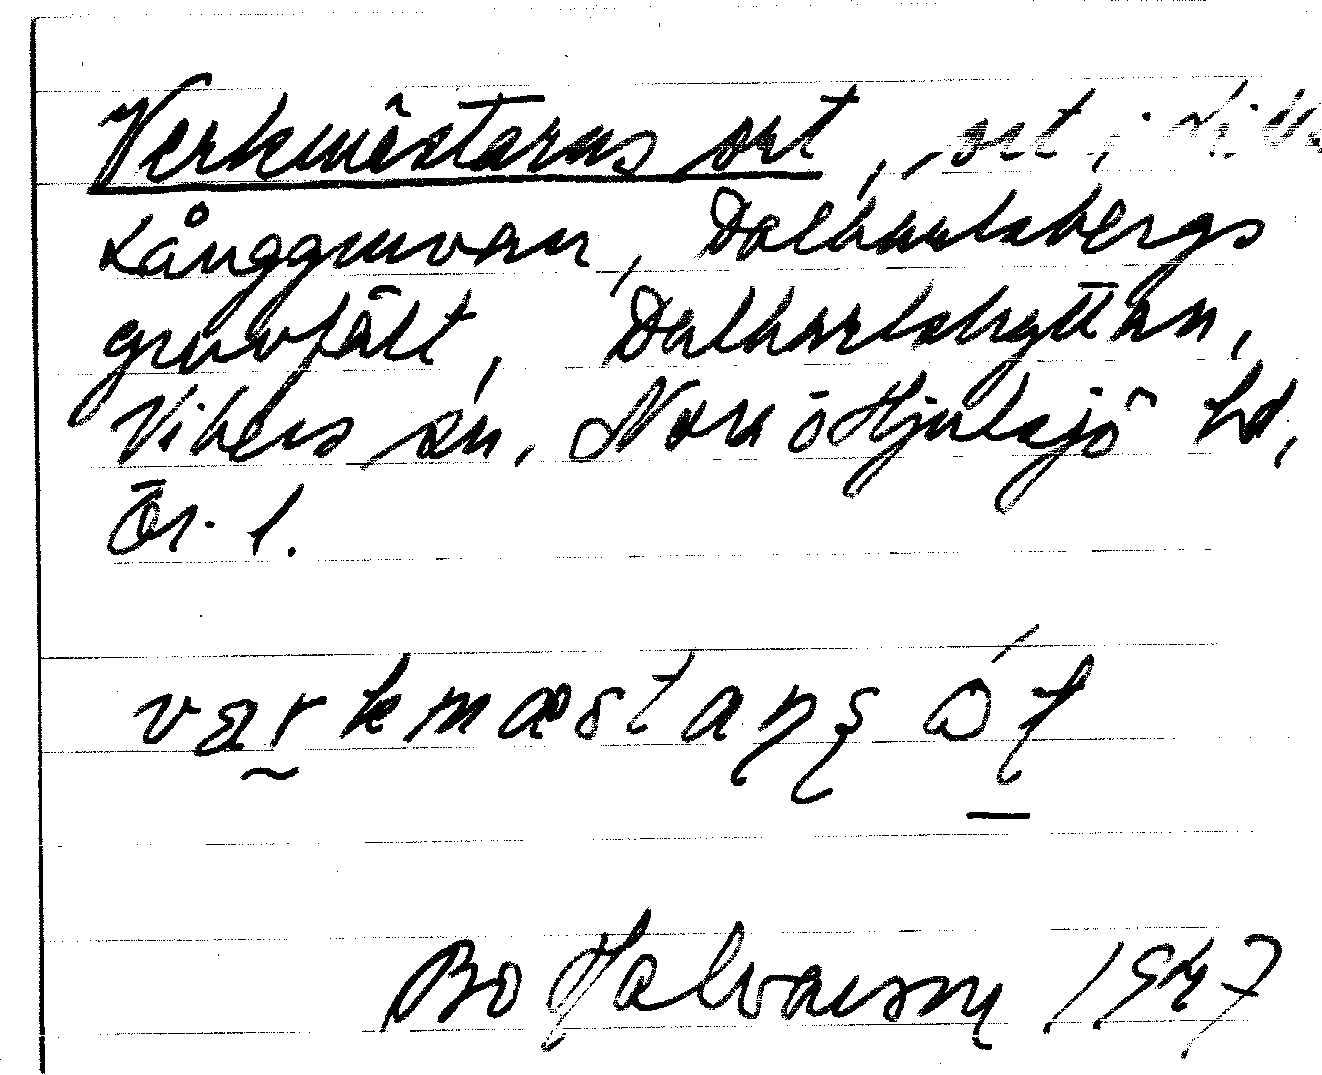 Verkmästarns ort, ort i
Långgruvan, Dalkarlsbergs
gruvfält, Dalkarlshyttan,
Vikers sn, Nora o Hjulsjö hd,
Ör. l.
værkmæstaɳʂ
Bo Halvarson 1947